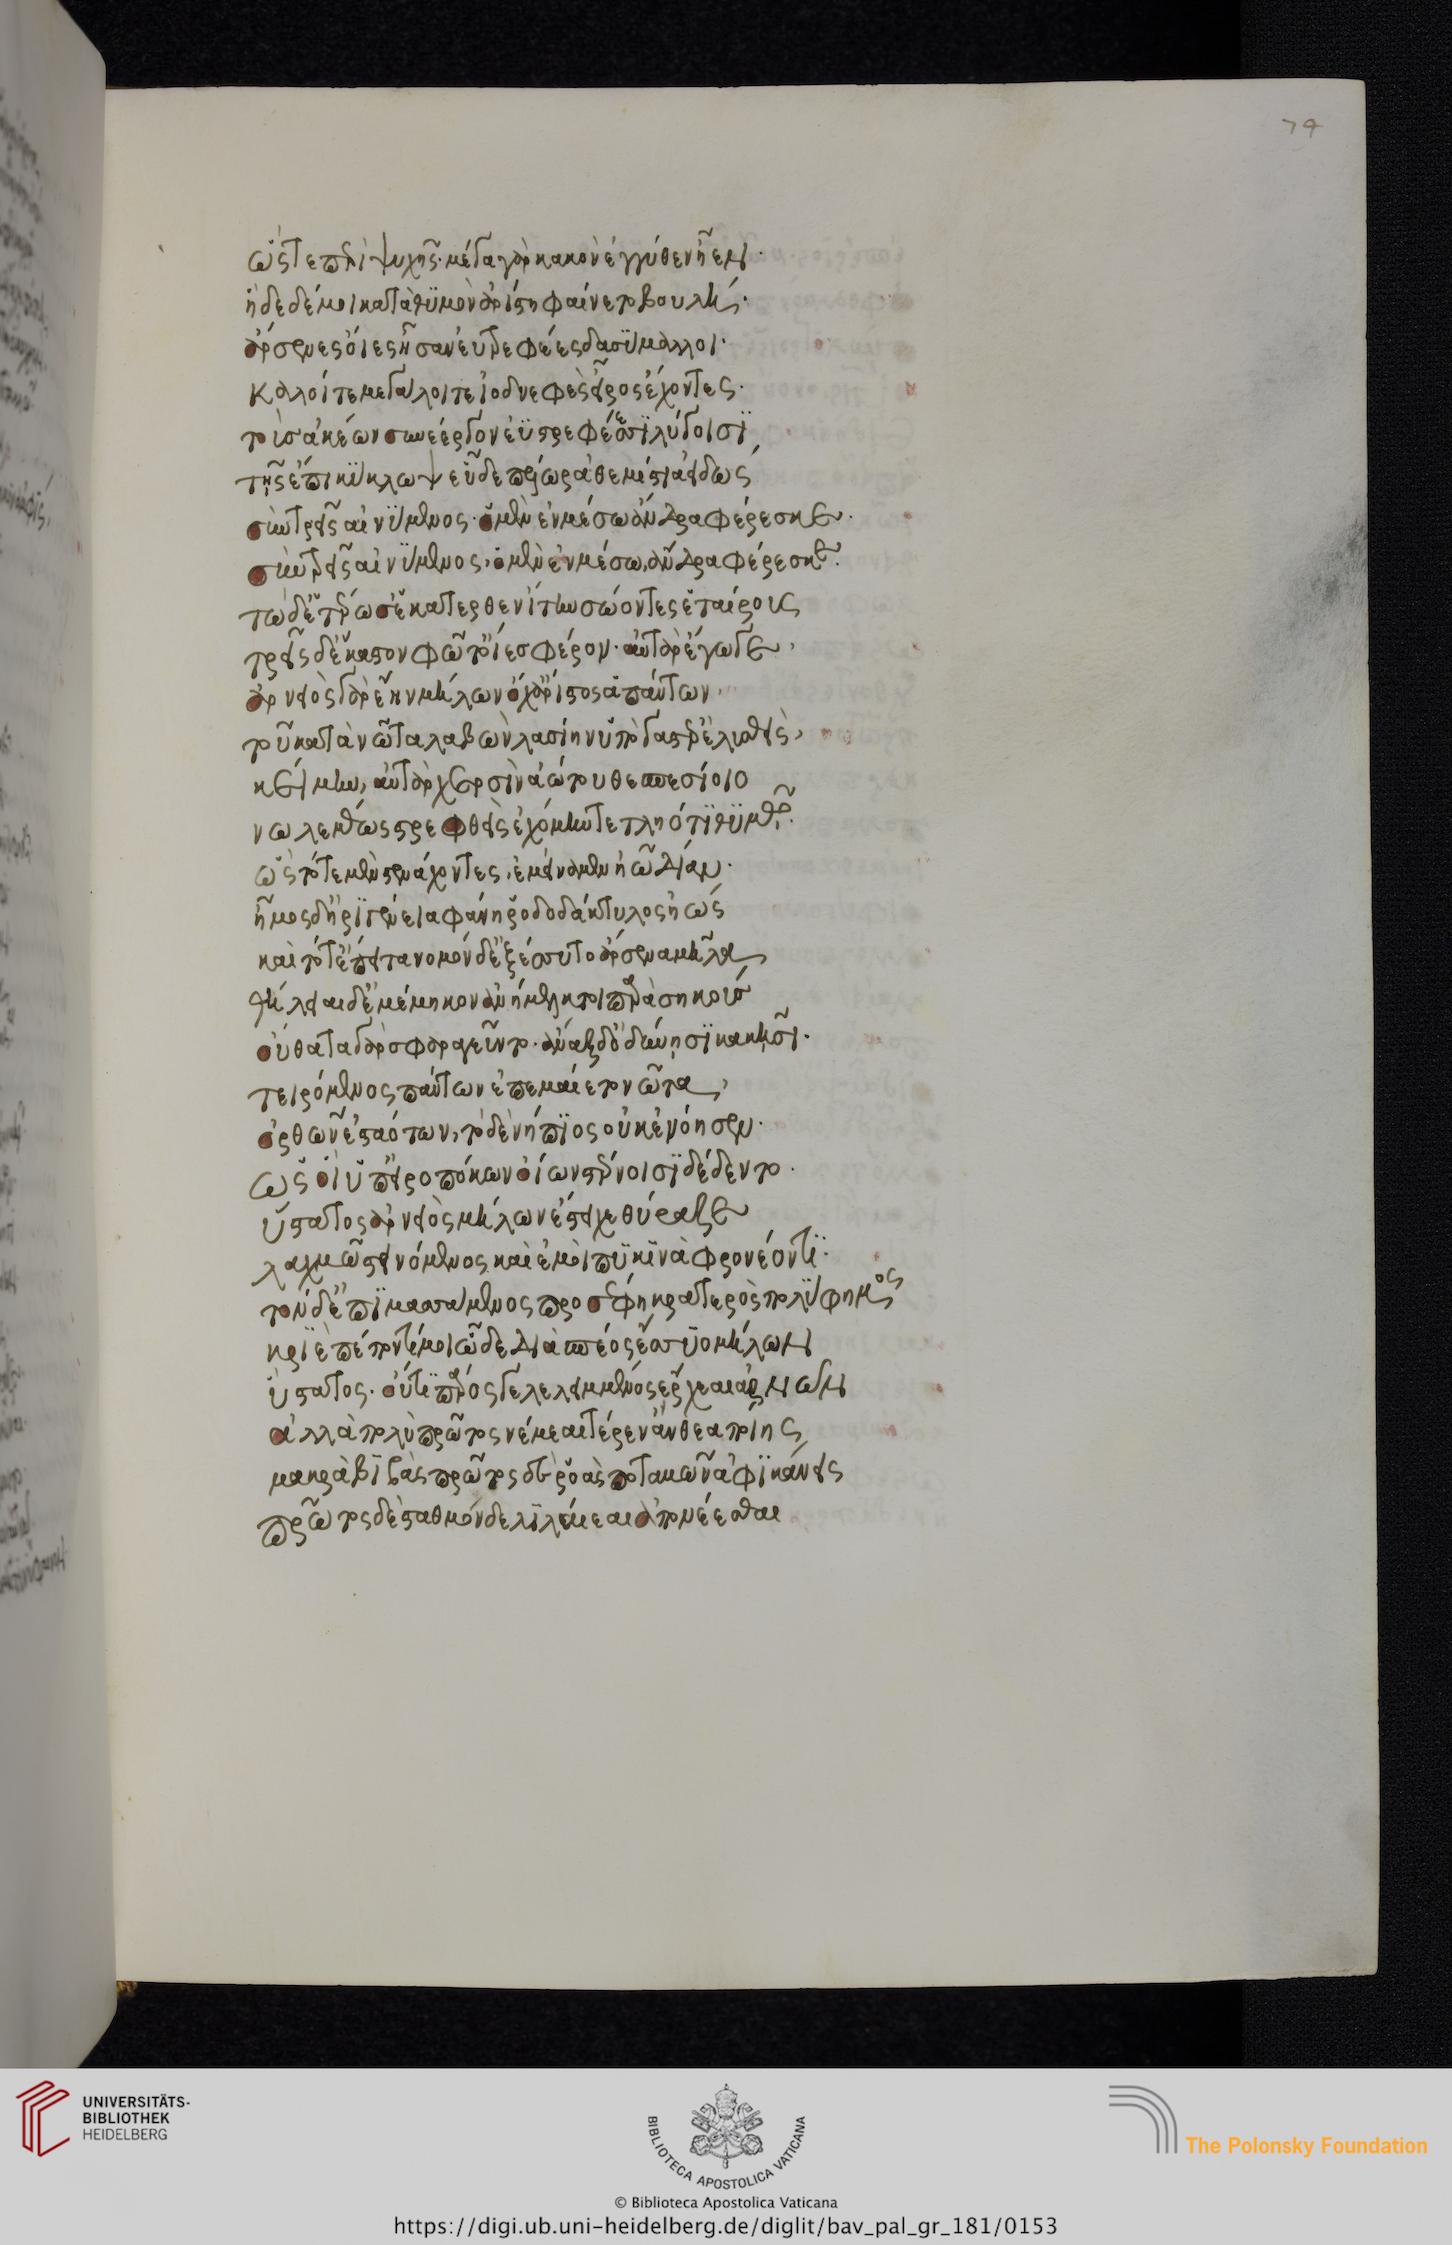 79
ὥς τε περὶ ψυχῆς· μέγα γὰρ κακὸν ἐγγύθεν ἦεν·
ἥδε δέ μοι κατὰ θυμὸν ἀρίστη φαίνετο βουλή·
ἄρσενες ὄιες ἦσαν ἐυτρεφέες δασύμαλλοι·
καλοί τε μεγάλοι τε ἰοδνεφὲς εἶρος ἔχοντες·
τοὺς ἀκέων συνέεργον ἐϋστρεφέεσσι λύγοισι
τῆς ἔπι κύκλωψ εὗδε πέλωρ ἀθεμίστια εἰδώς
σὺν τρεῖς αἰνύμενος· ὁ μὲν ἐν μέσω ἄνδρα φέρεσκε·
σὺν τρεῖς αἰνύμενος· ὁ μὲν ἐν μέσω, ἄνδρα φέρεσκε·
τὼ δ' ἑτέρω ἑκάτερθεν ἴτην σώοντες ἑταίρους
τρεῖς δὲ ἕκαστον φῶτ' ὄιες φέρον· αὐτὰρ ἔγωγε·
ἀρνειὸς γὰρ ἔην μήλων ὄχ' ἄριστος ἁπάντων·
τοῦ κατὰ νῶτα λαβὼν λασίην ὑπὸ γαστέρ' ἐλυσθεὶς·
κείμην, αὐτὰρ χερσὶν ἀώτου θεσπεσίοιο
νωλεμέως στρεφθεὶς ἐχόμην τετληότι θυμῷ·
ὣς τότε μὲν στενάχοντες, ἐμείναμεν ἠῶ δῖαν·
ἦμος δ' ἠριγένεια φάνη ῥοδοδάκτυλος ἠώς
καὶ τότ' ἔπειτα νομόνδ' ἐξέσσυτο ἄρσενα μῆλα,
θήλειαι δὲ μέμηκον ἀνήμελκτοι περὶ σηκούς
οὔθατα γὰρ σφαραγεῦντο· ἄναξ δ' ὀδύνησι κακῇσι·
τειρόμενος πάντων ἐπεμαίετο νῶτα,
ὀρθῶν ἑσταότων, τὸ δὲ νήπιος οὐκ ἐνόησεν·
ὥς οἱ ὑπ' εἰροπόκων ὀίων στέρνοισι δέδεντο·
ὕστατος ἀρνειὸς μήλων ἔστειχε θύραζε
λαχμῷ στεινόμενος καὶ ἐμοὶ πυκινὰ φρονέοντι·
τὸν δ' ἐπιμασσάμενος προσέφη κρατερὸς πολύφημος
κριὲ πέπον τί μοι ὧδε διὰ σπέος ἔσσυο μήλων
ὕστατος· οὔτι πάρος γε λελειμμένος ἔρχεαι ἀρνῶν
ἀλλὰ πολὺ πρῶτος νέμεαι τέρεν ἄνθεα ποίης,
μακρὰ βιβάς πρῶτος δὲ ῥοὰς ποταμῶν ἀφικάνεις
πρῶτος δὲ σταθμόνδε λιλαίεαι ἀπονέεσθαι
UNIVERSITÄTS-
BIBLIOTHEK
HEIDELBERG
BIBLIOTECA APOSTOLICA VATICANA
The Polonsky Foundation
© Biblioteca Apostolica Vaticana
https://digi.ub.uni-heidelberg.de/diglit/bav_pal_gr_181/0153